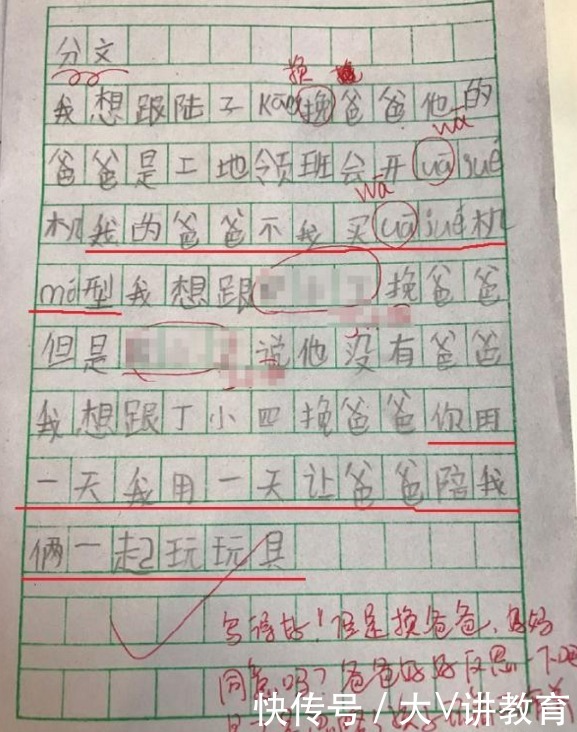 分文
换
我想跟陆子Kāng挽爸爸他的
wā
爸爸是工地领班会开uājué
wā
机我的爸爸不我买uājué机
mó型我想跟挽爸爸
但是说他没有爸爸
我想跟丁小四挽爸爸你用
一天我用一天让爸爸陪我
俩一起玩玩具
写得好!但是换爸爸,妈妈
同意吗?爸爸好好反思一下吧
快传号/大V讲教育